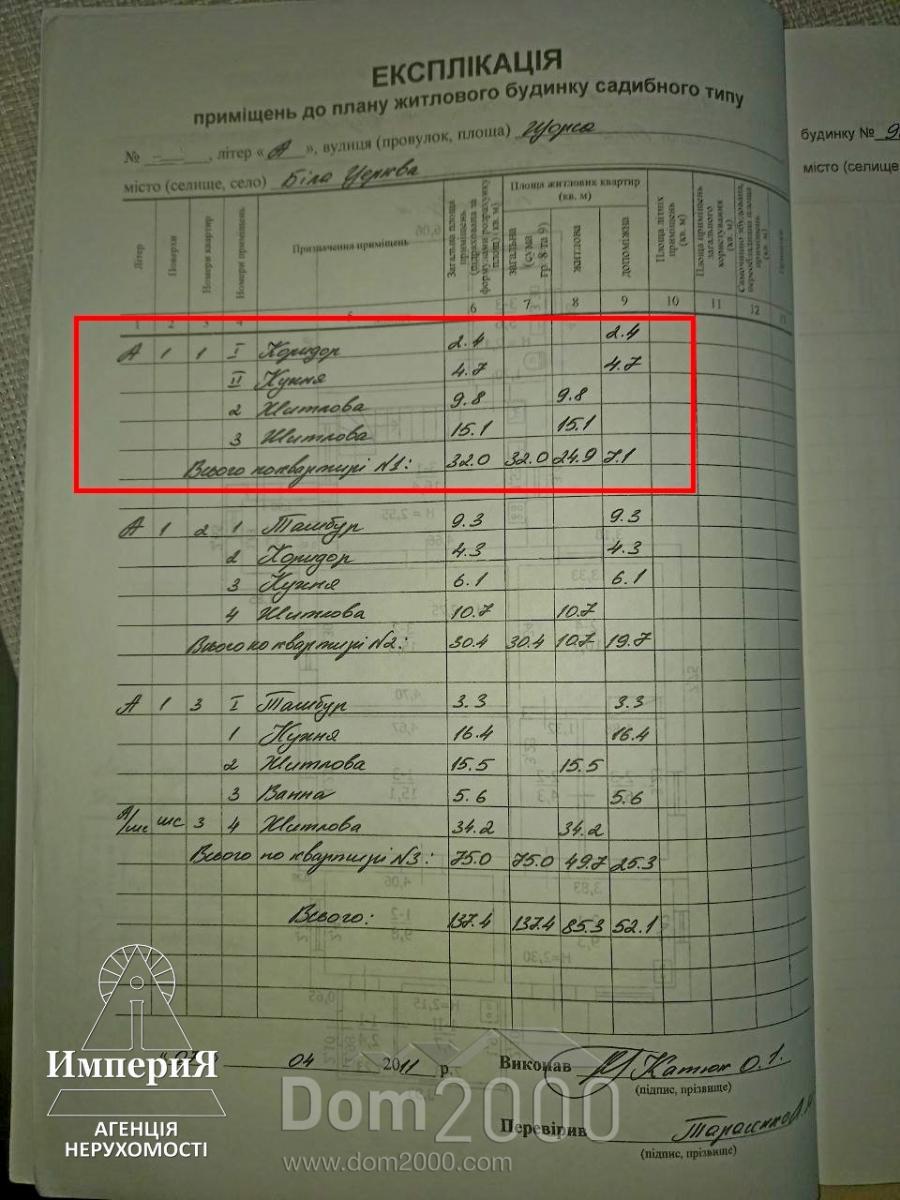 ЕКСПЛІКАЦІЯ
приміщень до плану житлового будинку садибного типу
№ —, літер « А », вулиця (провулок, площа) Щорса
місто (селище, село) Біла Церква
будинку №
місто (селище
Літер Поверхи Номери квартир Номери приміщень Призначення приміщень Загальна площа приміщень (підрахована за формулами розрахунку площ) (кв. м) Площа житлових квартир (кв. м) Площа літніх приміщень (кв. м) Площа приміщень загального користування (кв. м)
загальна (сума гр. 8 та 9) житлова допоміжна
1 2 3 4 5 6 7 8 9 10 11 12 13
А 1 1 I Коридор 2.4 2.4
II Кухня 4.7 4.7
2 Житлова 9.8 9.8
3 Житлова 15.1 15.1
Всього по квартирі №1: 32.0 32.0 24.9 7.1
А 1 2 1 Тамбур 9.3 9.3
2 Коридор 4.3 4.3
3 Кухня 6.1 6.1
4 Житлова 10.7 10.7
Всього по квартирі №2: 30.4 30.4 10.7 19.7
А 1 3 I Тамбур 3.3 3.3
1 Кухня 16.4 16.4
2 Житлова 15.5 15.5
3 Ванна 5.6 5.6
А/мс мс 3 4 Житлова 34.2 34.2
Всього по квартирі №3: 75.0 75.0 49.7 25.3
Всього: 137.4 137.4 85.3 52.1
04 2011 р.
Виконав Катюк О.І.
(підпис, прізвище)
Перевірив
(підпис, прізвище)
ИмпериЯ
АГЕНЦІЯ
НЕРУХОМОСТІ
Dom2000
www.dom2000.com